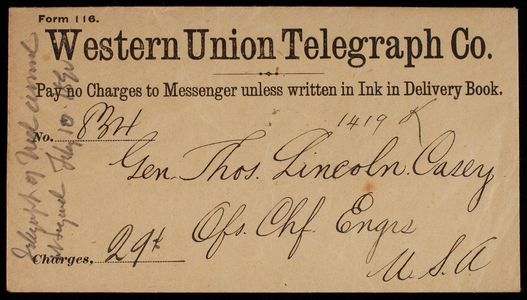 Form 116.
Western Union Telegraph Co.
Pay no Charges to Messenger unless written in Ink in Delivery Book.
No. 834
1419 K
Gen. Thos. Lincoln. Casey
Ofs. Chf. Engrs
Charges, 29¢
U. S. A
Telegraph of
July 10